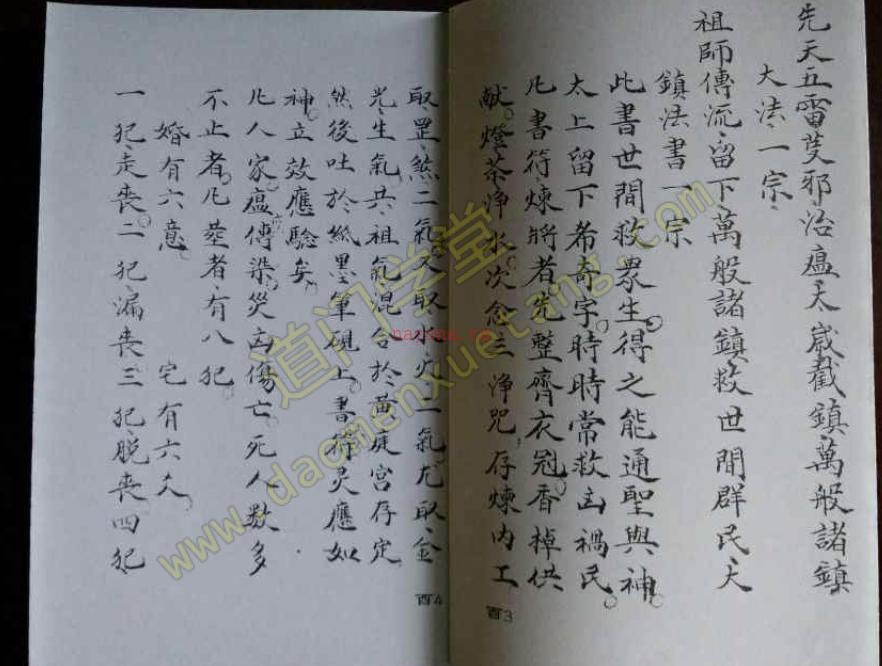 先天五雷𨳝邪治瘟天歲截鎮萬般諸鎮
大法一宗
祖師傳流留下萬般諸鎮救世間群民天
鎮法書一宗
此書世間救衆生得之能通聖與神
太上留下希奇字時時常救凶禍民
凡書符煉將者先整齊衣冠香棹供
献燈茶净水次念三净咒存煉内工
百3
取罡煞二氣又取水火二氣左取金
光生氣共祖氣混合於黄庭宫存定
然後吐於紙墨筆硯上書符灵應如
神立效應驗矣
凡人家瘟傳染災凶傷亡死人数多
不止者凡塟者有八犯
婚有六意 宅有六
一犯走丧二犯漏丧三犯脱丧四犯
百4
道门学堂
www.daomenxuetang.com